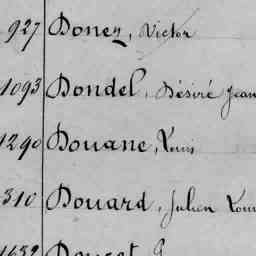 927 Doney, Victor
1093 Dondel, Désiré Jean
1290 Douane, Louis
310 Douard, Julien Loui
1652 Doucet